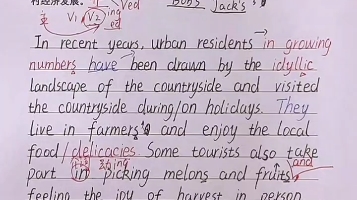 村经济发展。
Ved
V1 V2 ing
ed
Bob's Jack's
In recent years, urban residents in growing
numbers have been drawn by the idyllic
landscape of the countryside and visited
the countryside during/on holidays. They
live in farmers' and enjoy the local
food/delicacies Some tourists also take
part in picking melons and fruits and
feeling the joy of harvest in person